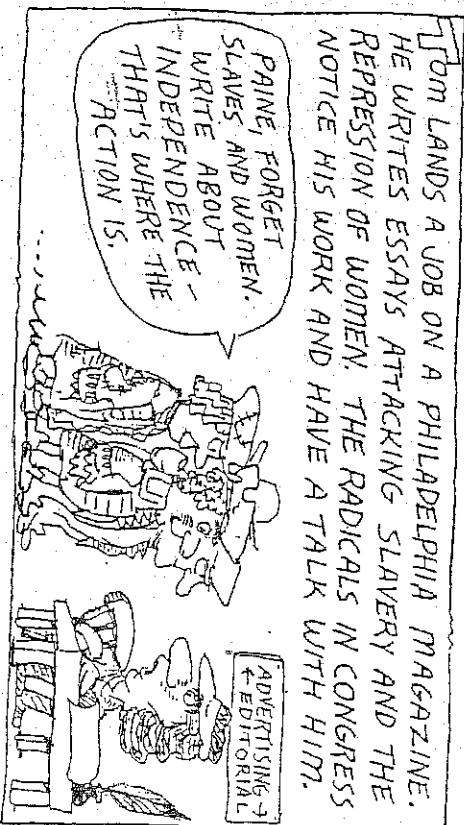 TOM LANDS A JOB ON A PHILADELPHIA MAGAZINE.
HE WRITES ESSAYS ATTACKING SLAVERY AND THE
REPRESSION OF WOMEN. THE RADICALS IN CONGRESS
NOTICE HIS WORK AND HAVE A TALK WITH HIM.
PAINE, FORGET
SLAVES AND WOMEN.
WRITE ABOUT
INDEPENDENCE -
THAT'S WHERE THE
ACTION IS.
ADVERTISING →
← EDITORIAL